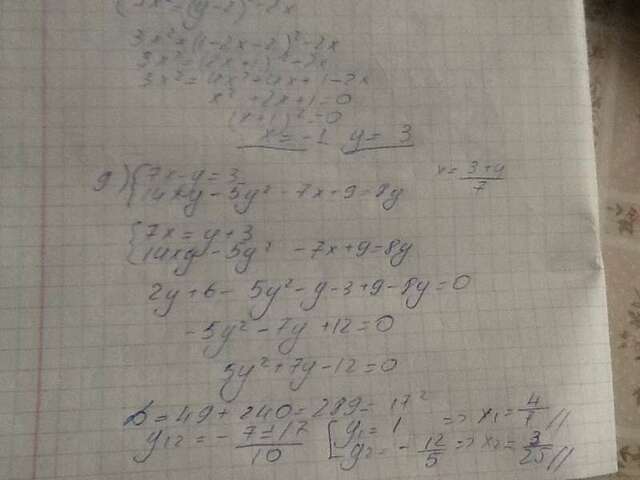 3x² = (y-2)² - 2x
3x² = (1-2x-2)² - 2x
3x² = (2x+1)² - 2x
3x² = 4x² + 4x + 1 - 2x
x² + 2x + 1 = 0
(x+1)² = 0
x = -1 y = 3
g) { 7x - y = 3 x = 3+y/7
14xy - 5y² - 7x + 9 = 8y
{ 7x = y + 3
14xy - 5y² - 7x + 9 = 8y
2y + 6 - 5y² - y - 3 + 9 - 8y = 0
-5y² - 7y + 12 = 0
5y² + 7y - 12 = 0
D = 49 + 240 = 289 = 17²
y12 = - 7±17/10 [ y1 = 1 => x1 = 4/7 //
y2 = - 12/5 => x2 = 3/25 //